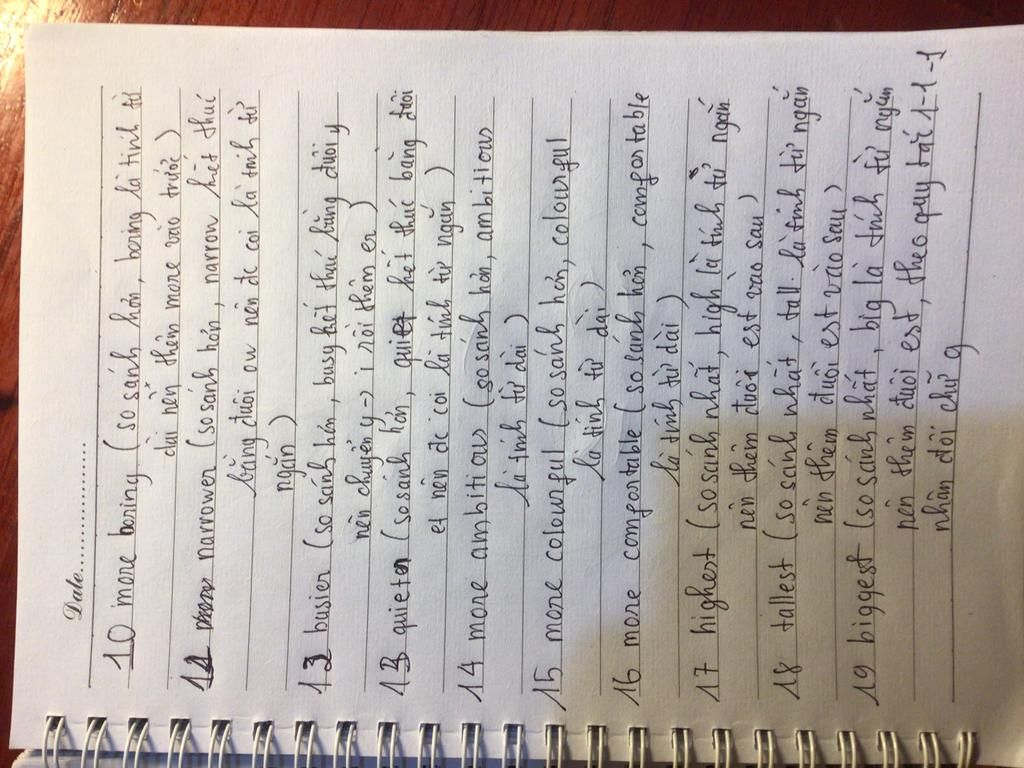 Date
10 more boring (so sánh hơn, boring là tính từ
dài nên thêm more vào trước)
11 narrower (so sánh hơn, narrow kết thúc
bằng đuôi ow nên đc coi là tính từ
ngắn)
12 busier (so sánh hơn, busy kết thúc bằng đuôi y
nên chuyển y -> i rồi thêm er)
13 quieter (so sánh hơn, quiet kết thúc bằng đuôi
et nên đc coi là tính từ ngắn)
14 more ambitious (so sánh hơn, ambitious
là tính từ dài)
15 more colourful (so sánh hơn, colourful
là tính từ dài)
16 more comfortable (so sánh hơn, comfortable
là tính từ dài)
17 highest (so sánh nhất, high là tính từ ngắn
nên thêm đuôi est vào sau)
18 tallest (so sánh nhất, tall là tính từ ngắn
nên thêm đuôi est vào sau)
19 biggest (so sánh nhất, big là tính từ ngắn
nên thêm đuôi est, theo quy tắc 1-1-1
nhân đôi chữ g